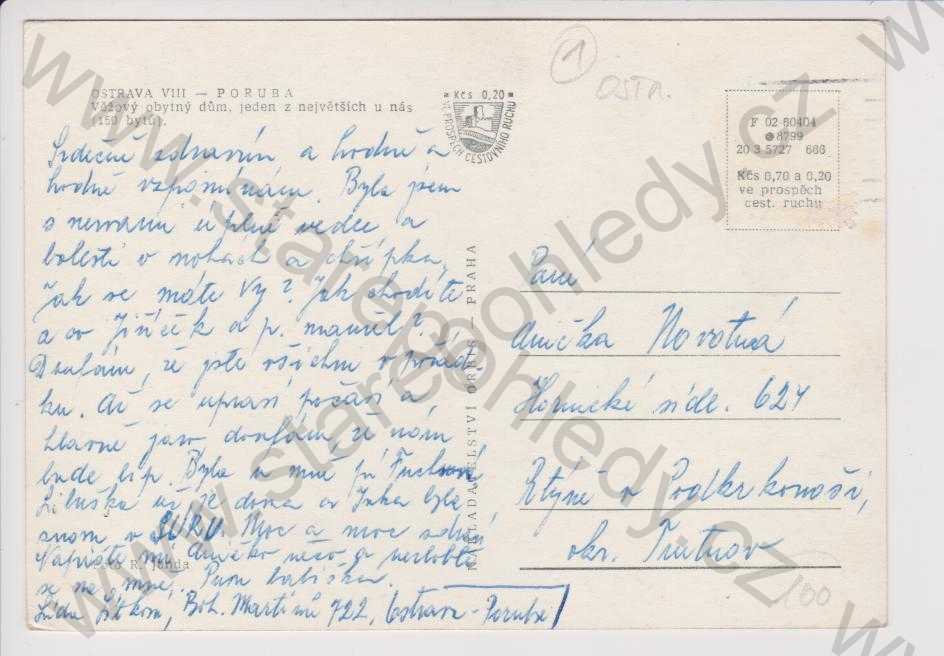 OSTRAVA VIII — PORUBA
Věžový obytný dům, jeden z největších u nás
(150 bytů).
Kčs 0,20
VE PROSPĚCH CESTOVNÍHO RUCHU
1
OSTR.
F 02-80404
8799
20 3 5727 666
Kčs 0,70 a 0,20
ve prospěch
cest. ruchu
Srdečně zdravím a hodně a
hodně vzpomínám. Byla jsem
s nervama úplně vedle a
bolesti v nohách a chřipka,
jak se máte Vy? Jak chodíte
a co Jiříček a p. manžel?
Doufám, že jste všichni v pořád-
ku. Ať se upraví počasí a
hlavně jaro doufám že nám
bude líp. Byla u mne pí
Liluška už je doma a
v Moc a moc zdraví
Napište mi Aničko něco a nezlobte
se na mne, babička.
Boh. Martinů 722, Ostrava-Poruba
R. Janda
NAKLADATELSTVÍ ORBIS — PRAHA
Paní
Anička Novotná
Hornické sídl. 624
Rtyně v Podkrkonoší,
okr. Trutnov
100
www.starepohledy.cz
www.starepohledy.cz